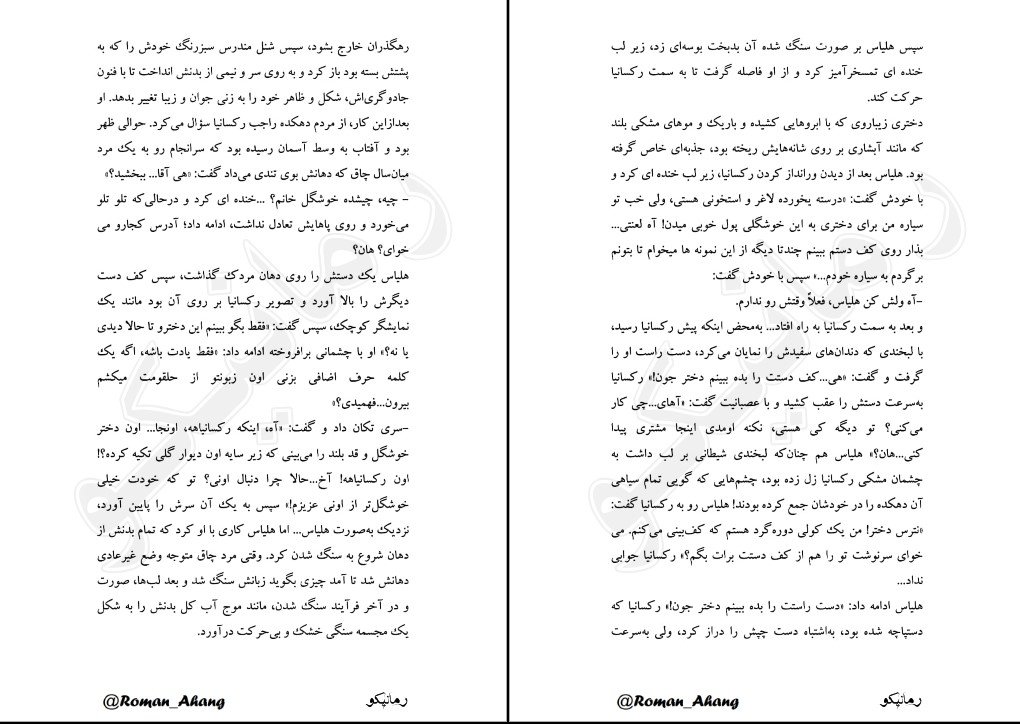 رهگذران خارج بشود، سپس شنل مندرس سبزرنگ خودش را که به
پشتش بسته بود باز کرد و به روی سر و نیمی از بدنش انداخت تا با فنون
جادوگری‌اش، شکل و ظاهر خود را به زنی جوان و زیبا تغییر بدهد. او
بعدازاین کار، از مردم دهکده راجب رکسانیا سؤال می‌کرد. حوالی ظهر
بود و آفتاب به وسط آسمان رسیده بود که سرانجام رو به یک مرد
میان‌سال چاق که دهانش بوی تندی می‌داد گفت: «هی آقا... ببخشید؟»
- چیه، چیشده خوشگل خانم؟ ...خنده ای کرد و درحالی‌که تلو تلو
می‌خورد و روی پاهایش تعادل نداشت، ادامه داد؛ آدرس کجارو می
خوای؟ هان؟
هلیاس یک دستش را روی دهان مردک گذاشت، سپس کف دست
دیگرش را بالا آورد و تصویر رکسانیا بر روی آن بود مانند یک
نمایشگر کوچک، سپس گفت: «فقط بگو ببینم این دخترو تا حالا دیدی
یا نه؟» او با چشمانی برافروخته ادامه داد: «فقط یادت باشه، اگه یک
کلمه حرف اضافی بزنی اون زبونتو از حلقومت میکشم
بیرون...فهمیدی؟»
-سری تکان داد و گفت: «آه، اینکه رکسانیاهه، اونجا... اون دختر
خوشگل و قد بلند را می‌بینی که زیر سایه اون دیوار گلی تکیه کرده؟!
اون رکسانیاهه! آخ...حالا چرا دنبال اونی؟ تو که خودت خیلی
خوشگل‌تر از اونی عزیزم!» سپس به یک آن سرش را پایین آورد،
نزدیک به‌صورت هلیاس... اما هلیاس کاری با او کرد که تمام بدنش از
دهان شروع به سنگ شدن کرد. وقتی مرد چاق متوجه وضع غیرعادی
دهانش شد تا آمد چیزی بگوید زبانش سنگ شد و بعد لب‌ها، صورت
و در آخر فرآیند سنگ شدن، مانند موج آب کل بدنش را به شکل
یک مجسمه سنگی خشک و بی‌حرکت درآورد.
رمانیکو @Roman_Ahang
سپس هلیاس بر صورت سنگ شده آن بدبخت بوسه‌ای زد، زیر لب
خنده ای تمسخرآمیز کرد و از او فاصله گرفت تا به سمت رکسانیا
حرکت کند.
دختری زیباروی که با ابروهایی کشیده و باریک و موهای مشکی بلند
که مانند آبشاری بر روی شانه‌هایش ریخته بود، جذبه‌ای خاص گرفته
بود. هلیاس بعد از دیدن ورانداز کردن رکسانیا، زیر لب خنده ای کرد و
با خودش گفت: «درسته یخورده لاغر و استخونی هستی، ولی خب تو
سیاره من برای دختری به این خوشگلی پول خوبی میدن! آه لعنتی...
بذار روی کف دستم ببینم چندتا دیگه از این نمونه ها میخوام تا بتونم
برگردم به سیاره خودم...» سپس با خودش گفت:
-آه ولش کن هلیاس، فعلاً وقتش رو ندارم.
و بعد به سمت رکسانیا به راه افتاد... به‌محض اینکه پیش رکسانیا رسید،
با لبخندی که دندان‌های سفیدش را نمایان می‌کرد، دست راست او را
گرفت و گفت: «هی...کف دستت را بده ببینم دختر جون!» رکسانیا
به‌سرعت دستش را عقب کشید و با عصبانیت گفت: «آهای...چی کار
می‌کنی؟ تو دیگه کی هستی، نکنه اومدی اینجا مشتری پیدا
کنی...هان؟» هلیاس هم چنان‌که لبخندی شیطانی بر لب داشت به
چشمان مشکی رکسانیا زل زده بود، چشم‌هایی که گویی تمام سیاهی
آن دهکده را در خودشان جمع کرده بودند! هلیاس رو به رکسانیا گفت:
«نترس دختر! من یک کولی دوره‌گرد هستم که کف‌بینی می‌کنم. می
خوای سرنوشت تو را هم از کف دستت برات بگم؟» رکسانیا جوابی
نداد...
هلیاس ادامه داد: «دست راستت را بده ببینم دختر جون!» رکسانیا که
دستپاچه شده بود، به‌اشتباه دست چپش را دراز کرد، ولی به‌سرعت
رمانیکو @Roman_Ahang